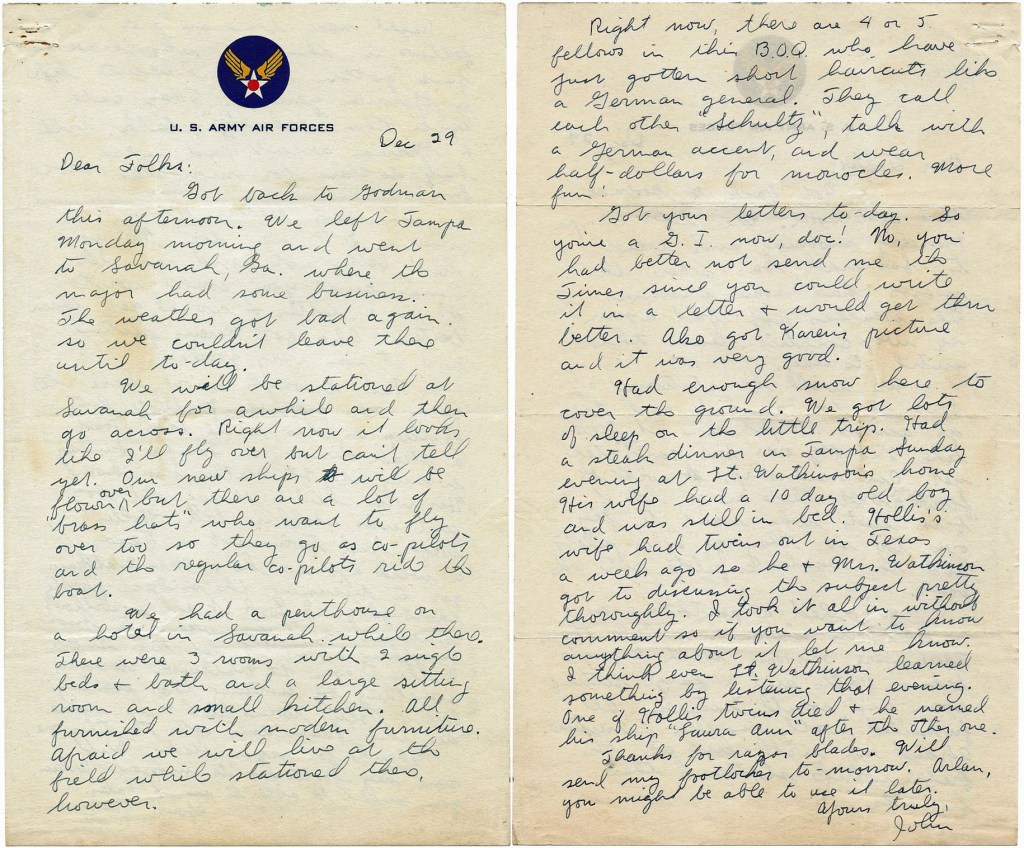 U. S. ARMY AIR FORCES
Dec 29
Dear Folks:
Got back to Godman
this afternoon. We left Tampa
Monday morning and went
to Savanah, Ga. where the
major had some business.
The weather got bad again
so we couldn't leave there
until to-day.
We will be stationed at
Savanah for awhile and then
go across. Right now it looks
like I'll fly over but can't tell
yet. Our new ships will be
flown over but there are a lot of
"brass hats" who want to fly
over too so they go as co-pilots
and the regular co-pilots ride the
boat.
We had a penthouse on
a hotel in Savanah while there.
There were 3 rooms with 2 single
beds + bath and a large sitting
room and small kitchen. All
furnished with modern furniture.
Afraid we will live at the
field while stationed there,
however.
Right now, there are 4 or 5
fellows in this B.O.Q. who have
just gotten short haircuts like
a German general. They call
each other "Schultz", talk with
a German accent, and wear
half-dollars for monocles. More
fun!
Got your letters to-day. So
you're a G. I. now, doc! No, you
had better not send me the
Times since you could write
it in a letter + would get them
better. Also got Karen's picture
and it was very good.
Had enough snow here to
cover the ground. We got lots
of sleep on the little trip. Had
a steak dinner in Tampa Sunday
evening at Lt. Watkinson's home
His wife had a 10 day old boy
and was still in bed. Hollis's
wife had twins out in Texas
a week ago so he + Mrs. Watkinson
got to discussing the subject pretty
thoroughly. I took it all in without
comment so if you want to know
anything about it let me know.
I think even Lt. Watkinson learned
something by listening that evening.
One of Hollis twins died + he named
his ship "Laura Ann" after the other one.
Thanks for razor blades. Will
send my footlocker to-morrow. Arlan,
you might be able to use it later.
Yours truly,
John